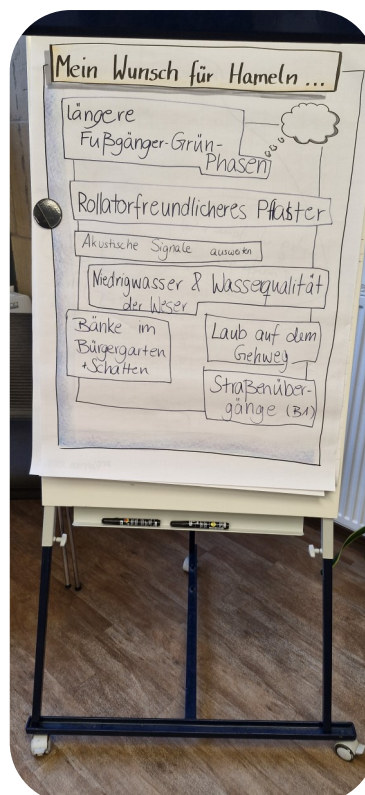 Mein Wunsch für Hameln ...
längere
Fußgänger-Grün-
Phasen
Rollatorfreundlicheres Pflaster
Akustische Signale ausweiten
Niedrigwasser & Wasserqualität
der Weser
Bänke im
Bürgergarten
+Schatten
Laub auf dem
Gehweg
Straßenüber-
gänge (B1)